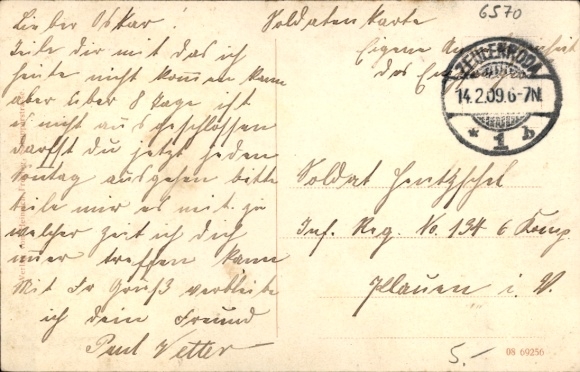 6570
Soldatenkarte
Eigene Angelegenheit
des Em
ZEULENRODA
14.2.09.6-7N.
* 1 b
Lieber Oskar!
Teile dir mit das ich
heute nicht kommen kann
aber über 8 Tage ist
es nicht ausgeschlossen
darfst du jetzt jeden
Sonntag ausgehen bitte
teile mir es mit zu
welcher zeit ich dich
immer treffen kann
Mit Fr Gruß verbleibe
ich dein Freund
Paul Vetter
Soldat Hentzschel
Inf. Reg. No. 134 6 Komp
Plauen i. V.
5.-
08 69256